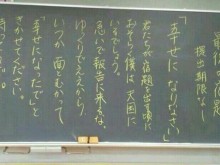 最後の宿題
提出期限なし
「幸せになりなさい」
君たちが宿題を出す頃に
おそらく僕は天国に
いるでしょうから、
急いで報告に来るな。
ゆっくりでええから
いつか面とむかって
「幸せになったで」と
きかせてください。
待ってるで。